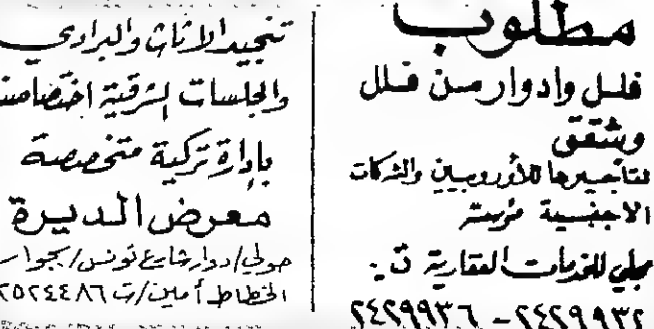 مطلوب
فلل وادوار من فلل
وشقق
لتأجيرها للأوروبيين والشركات
الاجنبية مؤسسة
للخدمات العقارية ت.
٢٤٢٩٩٣٦ - ٢٤٢٩٩٣٢
تنجيد الاثاث والبرادي
والجلسات الشرقية اختصاصنا
بإدارة تركية متخصصة
معرض الديرة
حولي/دوار شارع تونس/بجوار
الخطاط أمين/ت ٢٥٢٤٤٨٦